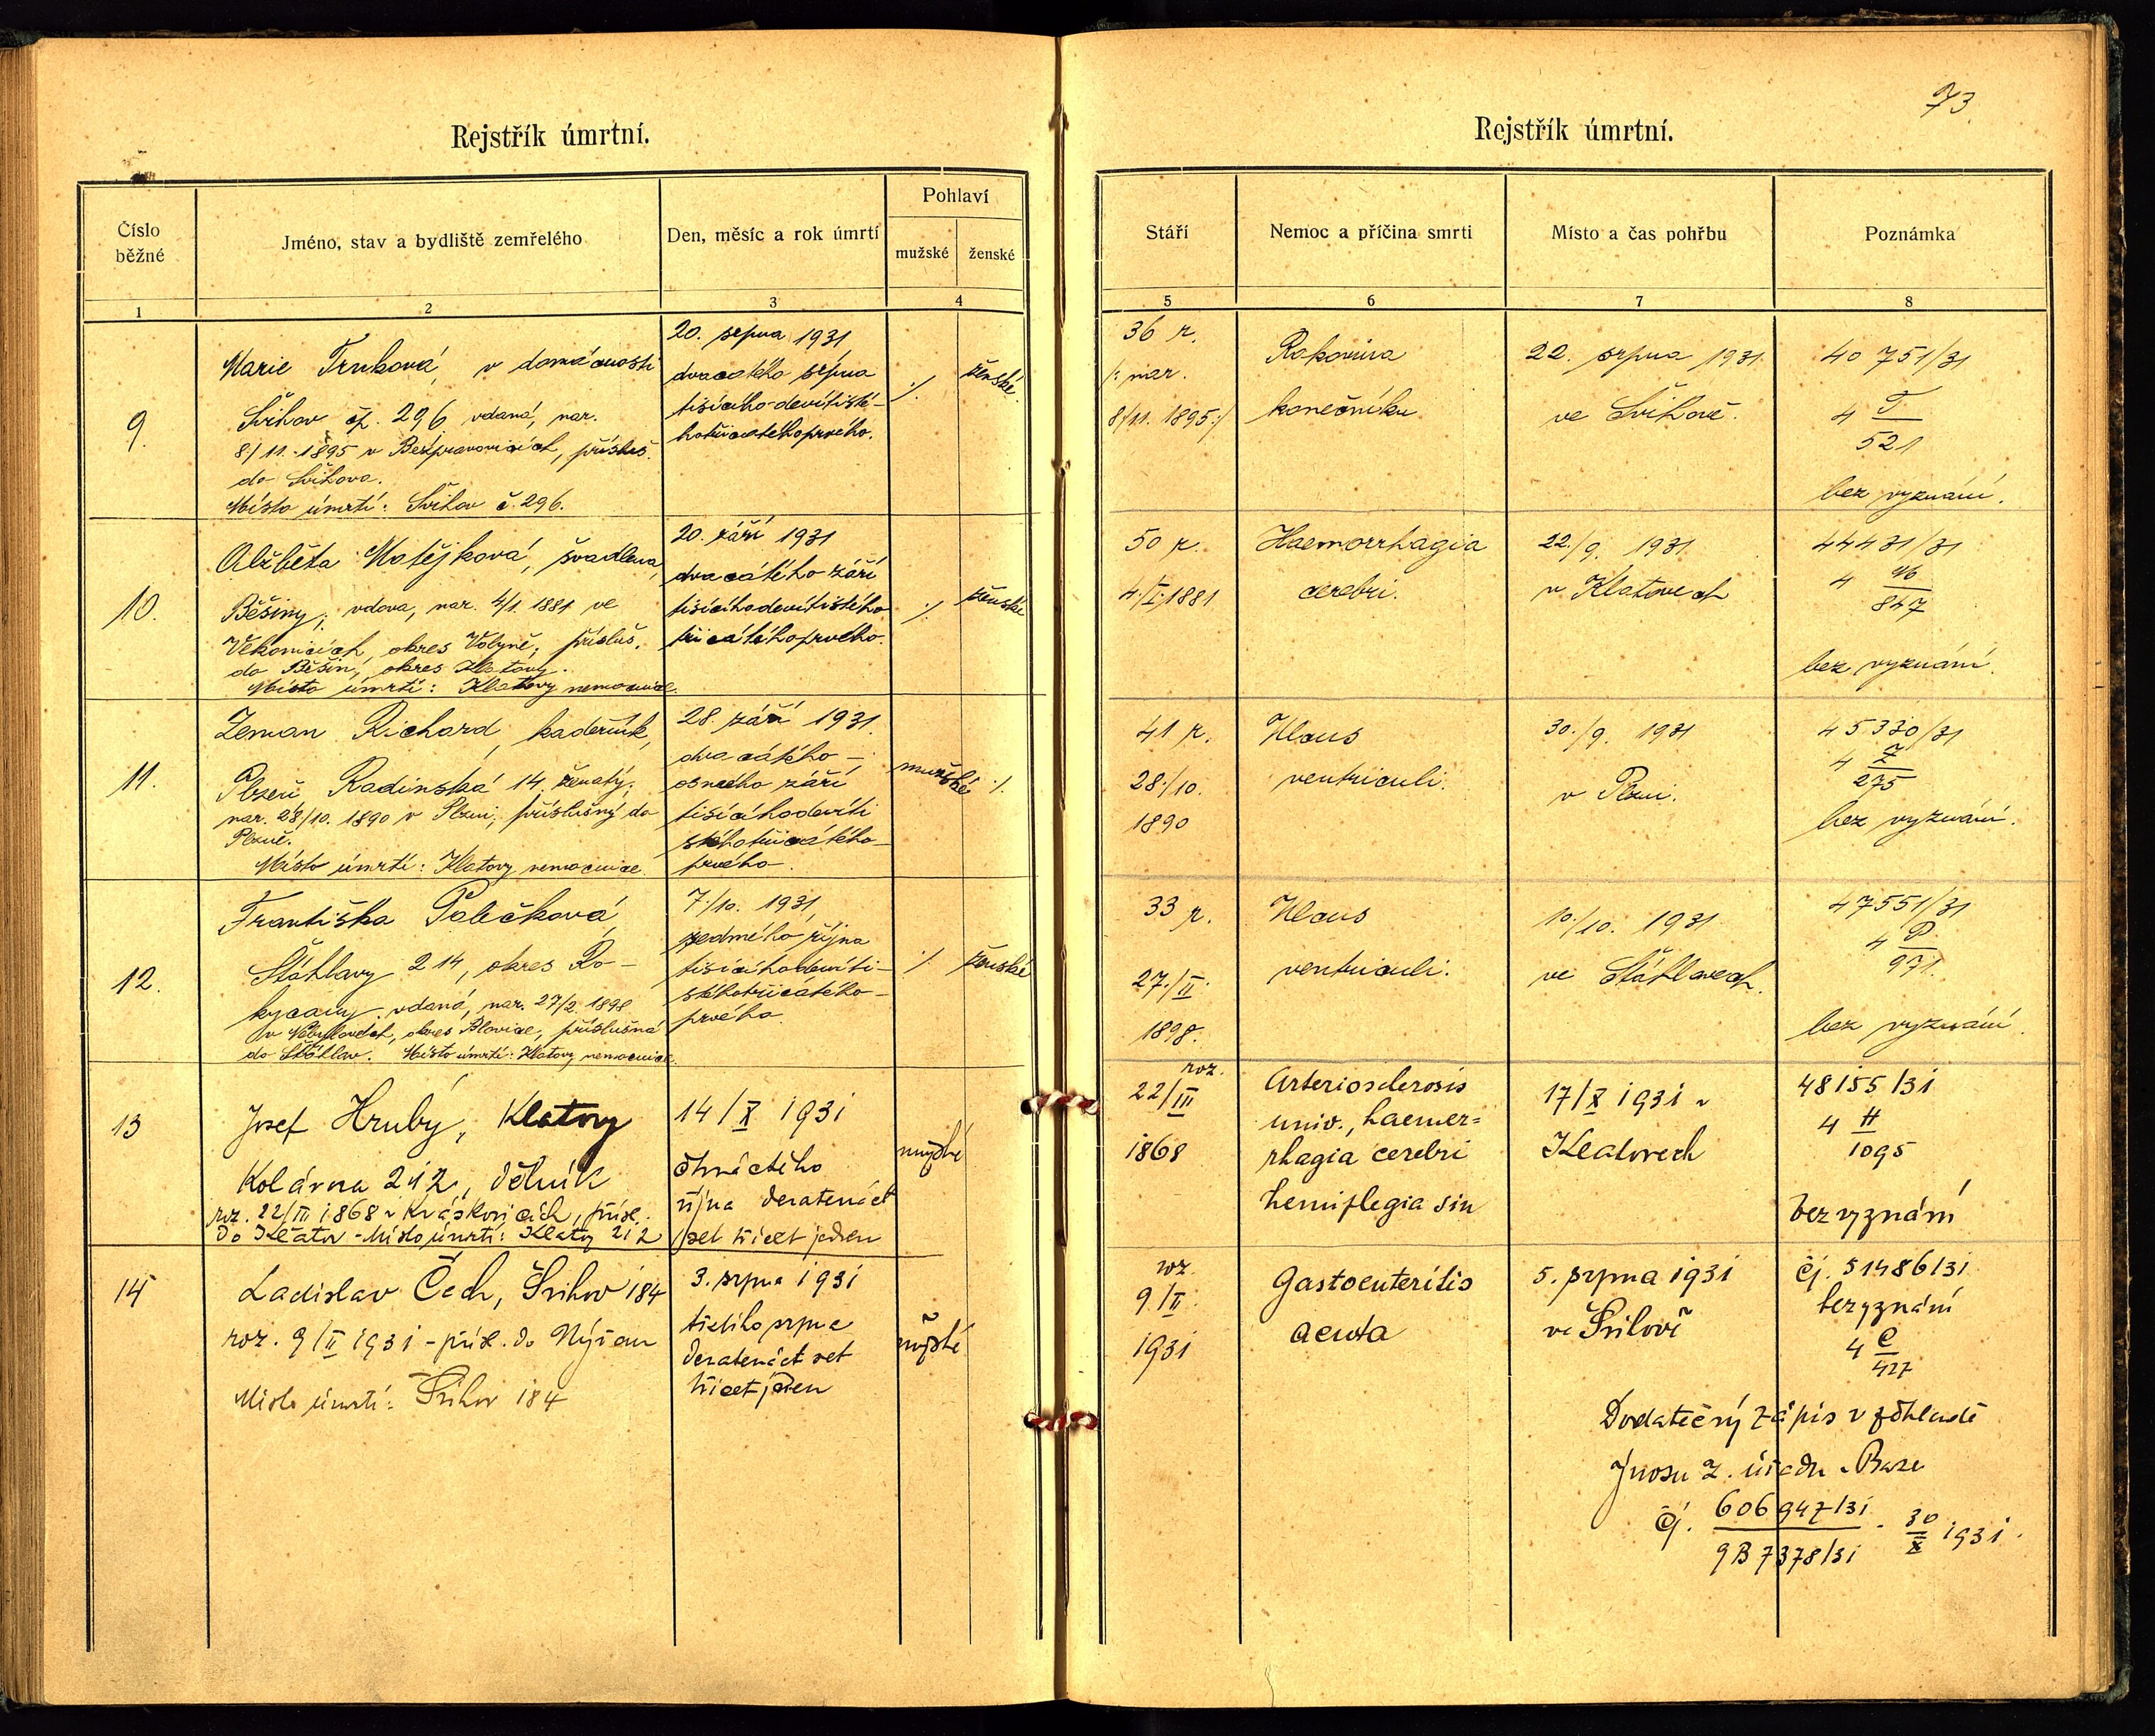 73.
Rejstřík úmrtní.
Číslo běžné
Jméno, stav a bydliště zemřelého
Den, měsíc a rok úmrtí
Pohlaví
mužské
ženské
1
2
3
4
9.
Marie Trnková, v domácnosti
Švihov čp. 296, vdaná, nar.
8/11. 1895 v Bezpravovicích, přísluš.
do Švihova.
Místo úmrtí: Švihov č. 296.
20. srpna 1931
dvacátého srpna
tisícího-devítisté-
hotřicátéhoprvého.
./.
ženské
10.
Alžběta Matějková, švadlena,
Běšiny, vdova, nar. 4/1. 1881 ve
okres Volyně, přísluš.
do Běšin, okres Klatovy.
Místo úmrtí: Klatovy nemocnice.
20. září 1931
dvacátého září
tisícíhodevítistého
třicátéhoprvého.
./.
ženské
11.
Zeman Richard, kadeřník,
Plzeň Radinská 14, ženatý,
nar. 28/10. 1890 v Plzni, příslušný do
Plzně.
Místo úmrtí: Klatovy nemocnice.
28. září 1931.
dvacátého-
osmého září
tisícíhodevíti
stéhotřicátého-
prvého.
mužské
./.
12.
Františka Palečková,
Šťáhlavy 214, okres Ro-
kycany, vdaná, nar. 27/2. 1898
v okres Blovice, příslušná
do Šťáhlav. Místo úmrtí: Klatovy nemocnice.
7./10. 1931,
sedmého října
tisícíhodevíti-
stéhotřicátého-
prvého.
./.
ženské
13
Josef Hrubý, Klatovy
Kolárna 212, dělník
roz. 22/III 1868 v Kváskovicích, přísl.
do Klatov - Místo úmrtí: Klatovy 212
14/X 1931
čtrnáctého
října devatenáct
set třicet jeden
mužské
14
Ladislav Čech, Švihov 184
roz. 9/II 1931 - přísl. do Nýřan
Místo úmrtí: Švihov 184
3. srpna 1931
třetího srpna
devatenáct set
třicet jeden
mužské
Rejstřík úmrtní.
Stáří
Nemoc a příčina smrti
Místo a čas pohřbu
Poznámka
5
6
7
8
36 r.
/: nar.
8/11. 1895:/
Rakovina
konečníku
22. srpna 1931.
ve Švihově.
40 751/31
4 T/521
bez vyznání.
50 r.
4./I. 1881
Haemorrhagia
cerebri.
22./9. 1931.
v Klatovech
44431/31
4 M/847
bez vyznání.
41 r.
28./10.
1890
Ulcus
ventriculi.
30./9. 1931
v Plzni.
45330/31
4 Z/275
bez vyznání.
33 r.
27./II.
1898.
Ulcus
ventriculi.
10./10. 1931.
ve Šťáhlavech.
47551/31
4 P/971.
bez vyznání.
roz.
22/III
1868
Arteriosclerosis
univ., haemer=
rhagia cerebri
hemiplegia sin
17/X 1931 v
Klatovech
48155/31
4 H/1095
bez vyznání
roz.
9./II.
1931
Gastoenteritis
acuta
5. srpna 1931
ve Švihově
čj. 51486/31
bez vyznání
4 C/427
Dodatečný zápis v
z. úřadu v Praze
čj. 606947/31
9B 7378/31
- 30/X 1931.